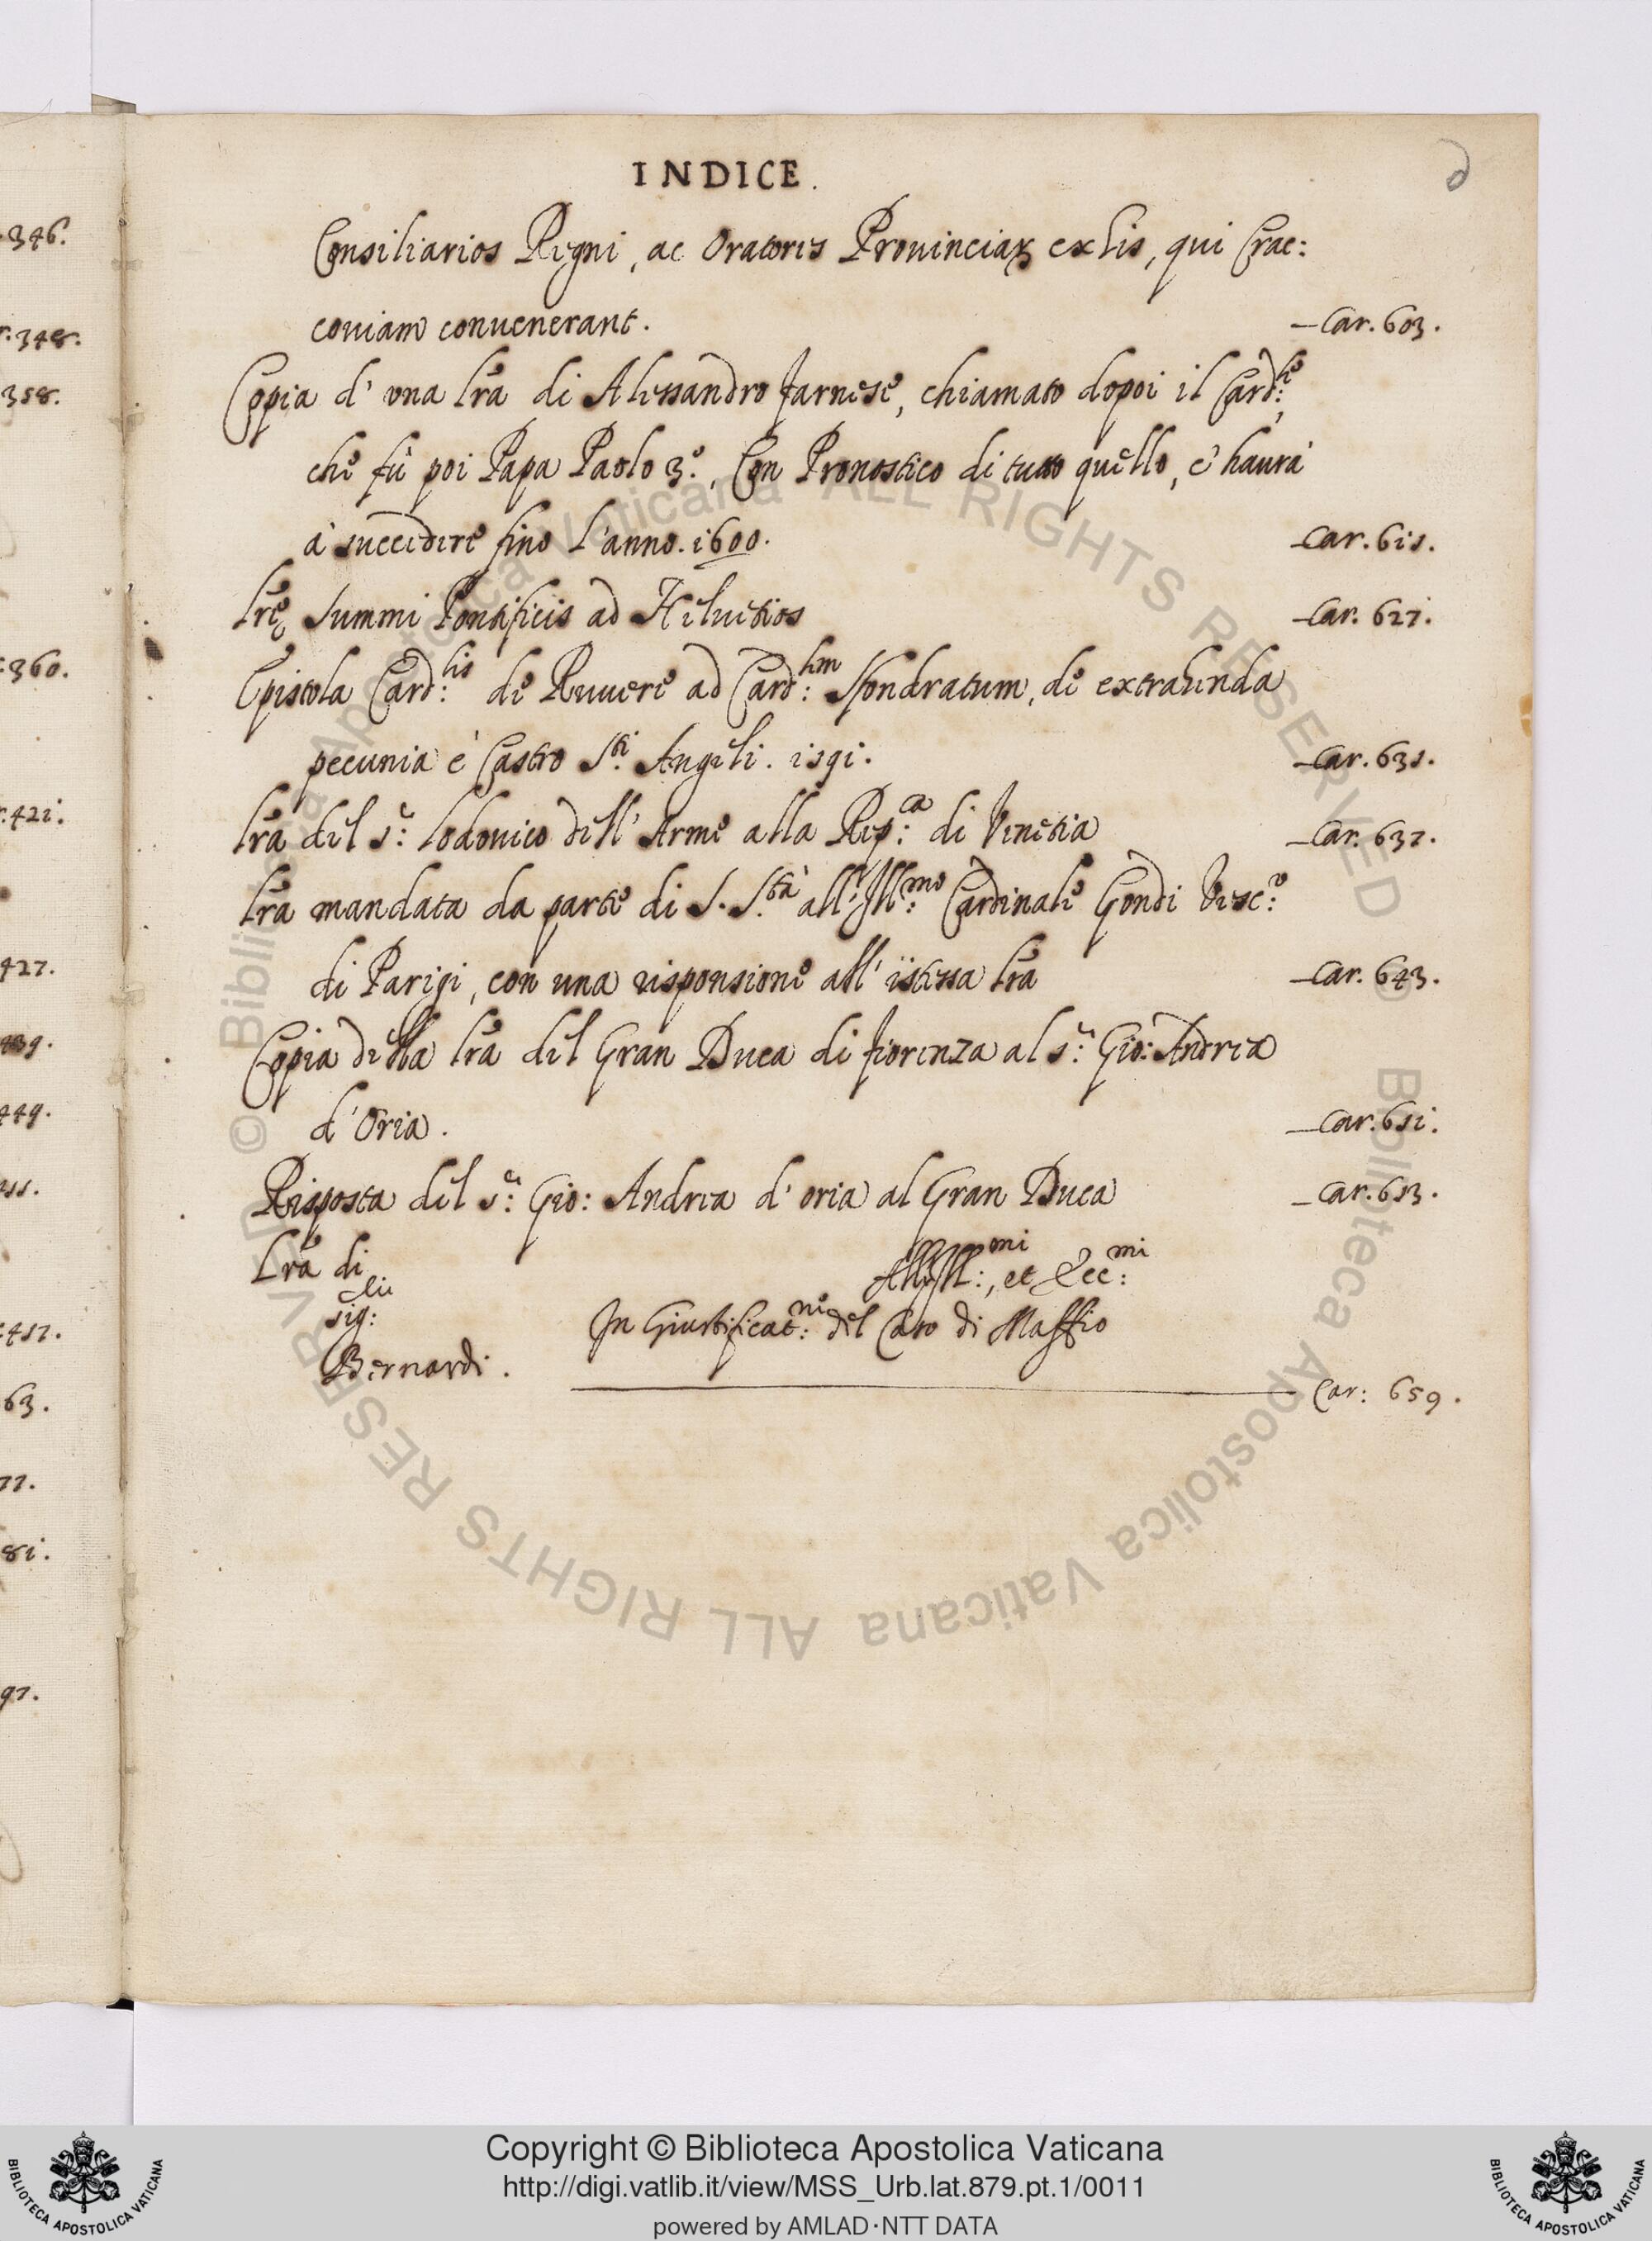 346.
348.
358.
360.
421.
427.
439.
449.
457.
63.
77.
81.
97.
INDICE.
Consiliarios Regni, ac Oratores Prouinciaꝝ exlis, qui Crac:
couiam conuenerant. — Car. 603.
Copia d' una lr̃a di Alessandro Farnese, chiamato dopoi il Card:le,
che fù poi Papa Paolo 3.º, Con Pronostico di tutto quello, c' haurà
à succedere fino l'anno. 1600. — Car. 615.
Lr̃ę Summi Pontificis ad Heluetios — Car. 627.
Epistola Card:lis de Ruuere ad Card:lem Sfondratum, de extrahenda
pecunia è Castro S.ti Angeli. 1591. — Car. 635.
Lr̃a del s.r: Lodouico dell' Arme alla Rep:ca di Venetia — Car. 637.
Lr̃a mandata da parte di S. S.tà all' Ill:mo Cardinale Gondi Vesc:o
di Parigi, con una risponsione all' istessa lr̃a — Car. 643.
Copia della lr̃a del Gran Duca di fiorenza al s.r: Gio: Andrea
d' Oria. — Car. 651.
Risposta del s.r: Gio: Andrea d' oria al Gran Duca — Car. 653.
Lr̃a di All' Ill:mi, et Ecc:mi
sig:
In Giustificat:ne del Caso di Maffio
Bernardi. — Car: 659.
© Biblioteca Apostolica Vaticana ALL RIGHTS RESERVED
© Biblioteca Apostolica Vaticana ALL RIGHTS RESERVED
Copyright © Biblioteca Apostolica Vaticana
http://digi.vatlib.it/view/MSS_Urb.lat.879.pt.1/0011
powered by AMLAD·NTT DATA
BIBLIOTECA APOSTOLICA VATICANA
BIBLIOTECA APOSTOLICA VATICANA